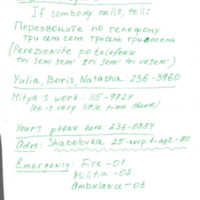 If sombody calls, tell:
Перезвоните по телефону
три семь семь три семь три восемь
(Perezvonite po telefonu
tri sem' sem' tri sem' tri vosem')
Yulia, Boris, Natasha 236-3960
Mitya's work: 115-9724
(he is very little time there)
Yours phone here: 236-0884
Adrs: Shabolovka 25-
Emergency: Fire -01
Militia -02
Ambulance -03